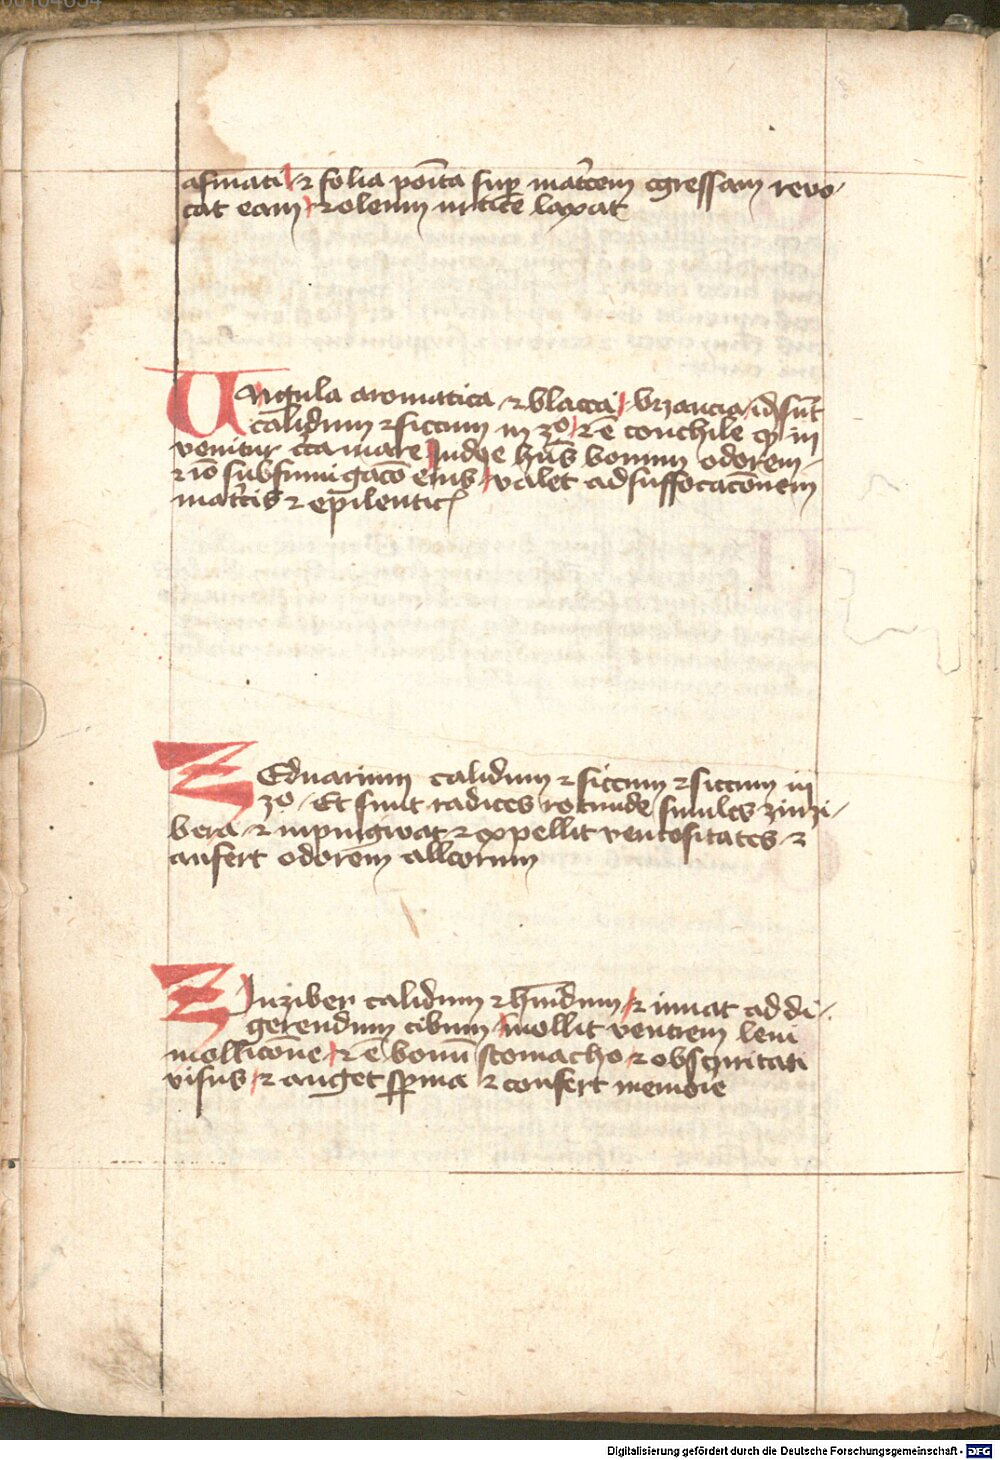 asmati ⁊ folia posita sup matricem egressam revo-
cat eam ⁊ oleum urtice laxat
Vngula aromatica ⁊ blacca bizancia id sunt
calidum ⁊ siccum in 3o ⁊ ē conchile qͥ in
venitur
mare Indye hūs bonum odorem
⁊ iō subfumigacō eius valet ad suffocacōnem
matricis ⁊ epilentic
ZEduarium calidum ⁊ siccum ⁊ siccum in
3o Et sunt radices rotunde similes zinzi-
beri ⁊ inpingwat ⁊ expellit ventositates ⁊
aufert odorem alleorum
ZInziber calidum ⁊ hūīdum ⁊ iuuat ad di-
gerendum cibum mollit ventrem leni
mollicōne ⁊ ē bonū stomacho ⁊ obscuritati
visus ⁊ auget sperma ⁊ confert memorie
Digitalisierung gefördert durch die Deutsche Forschungsgemeinschaft - DFG